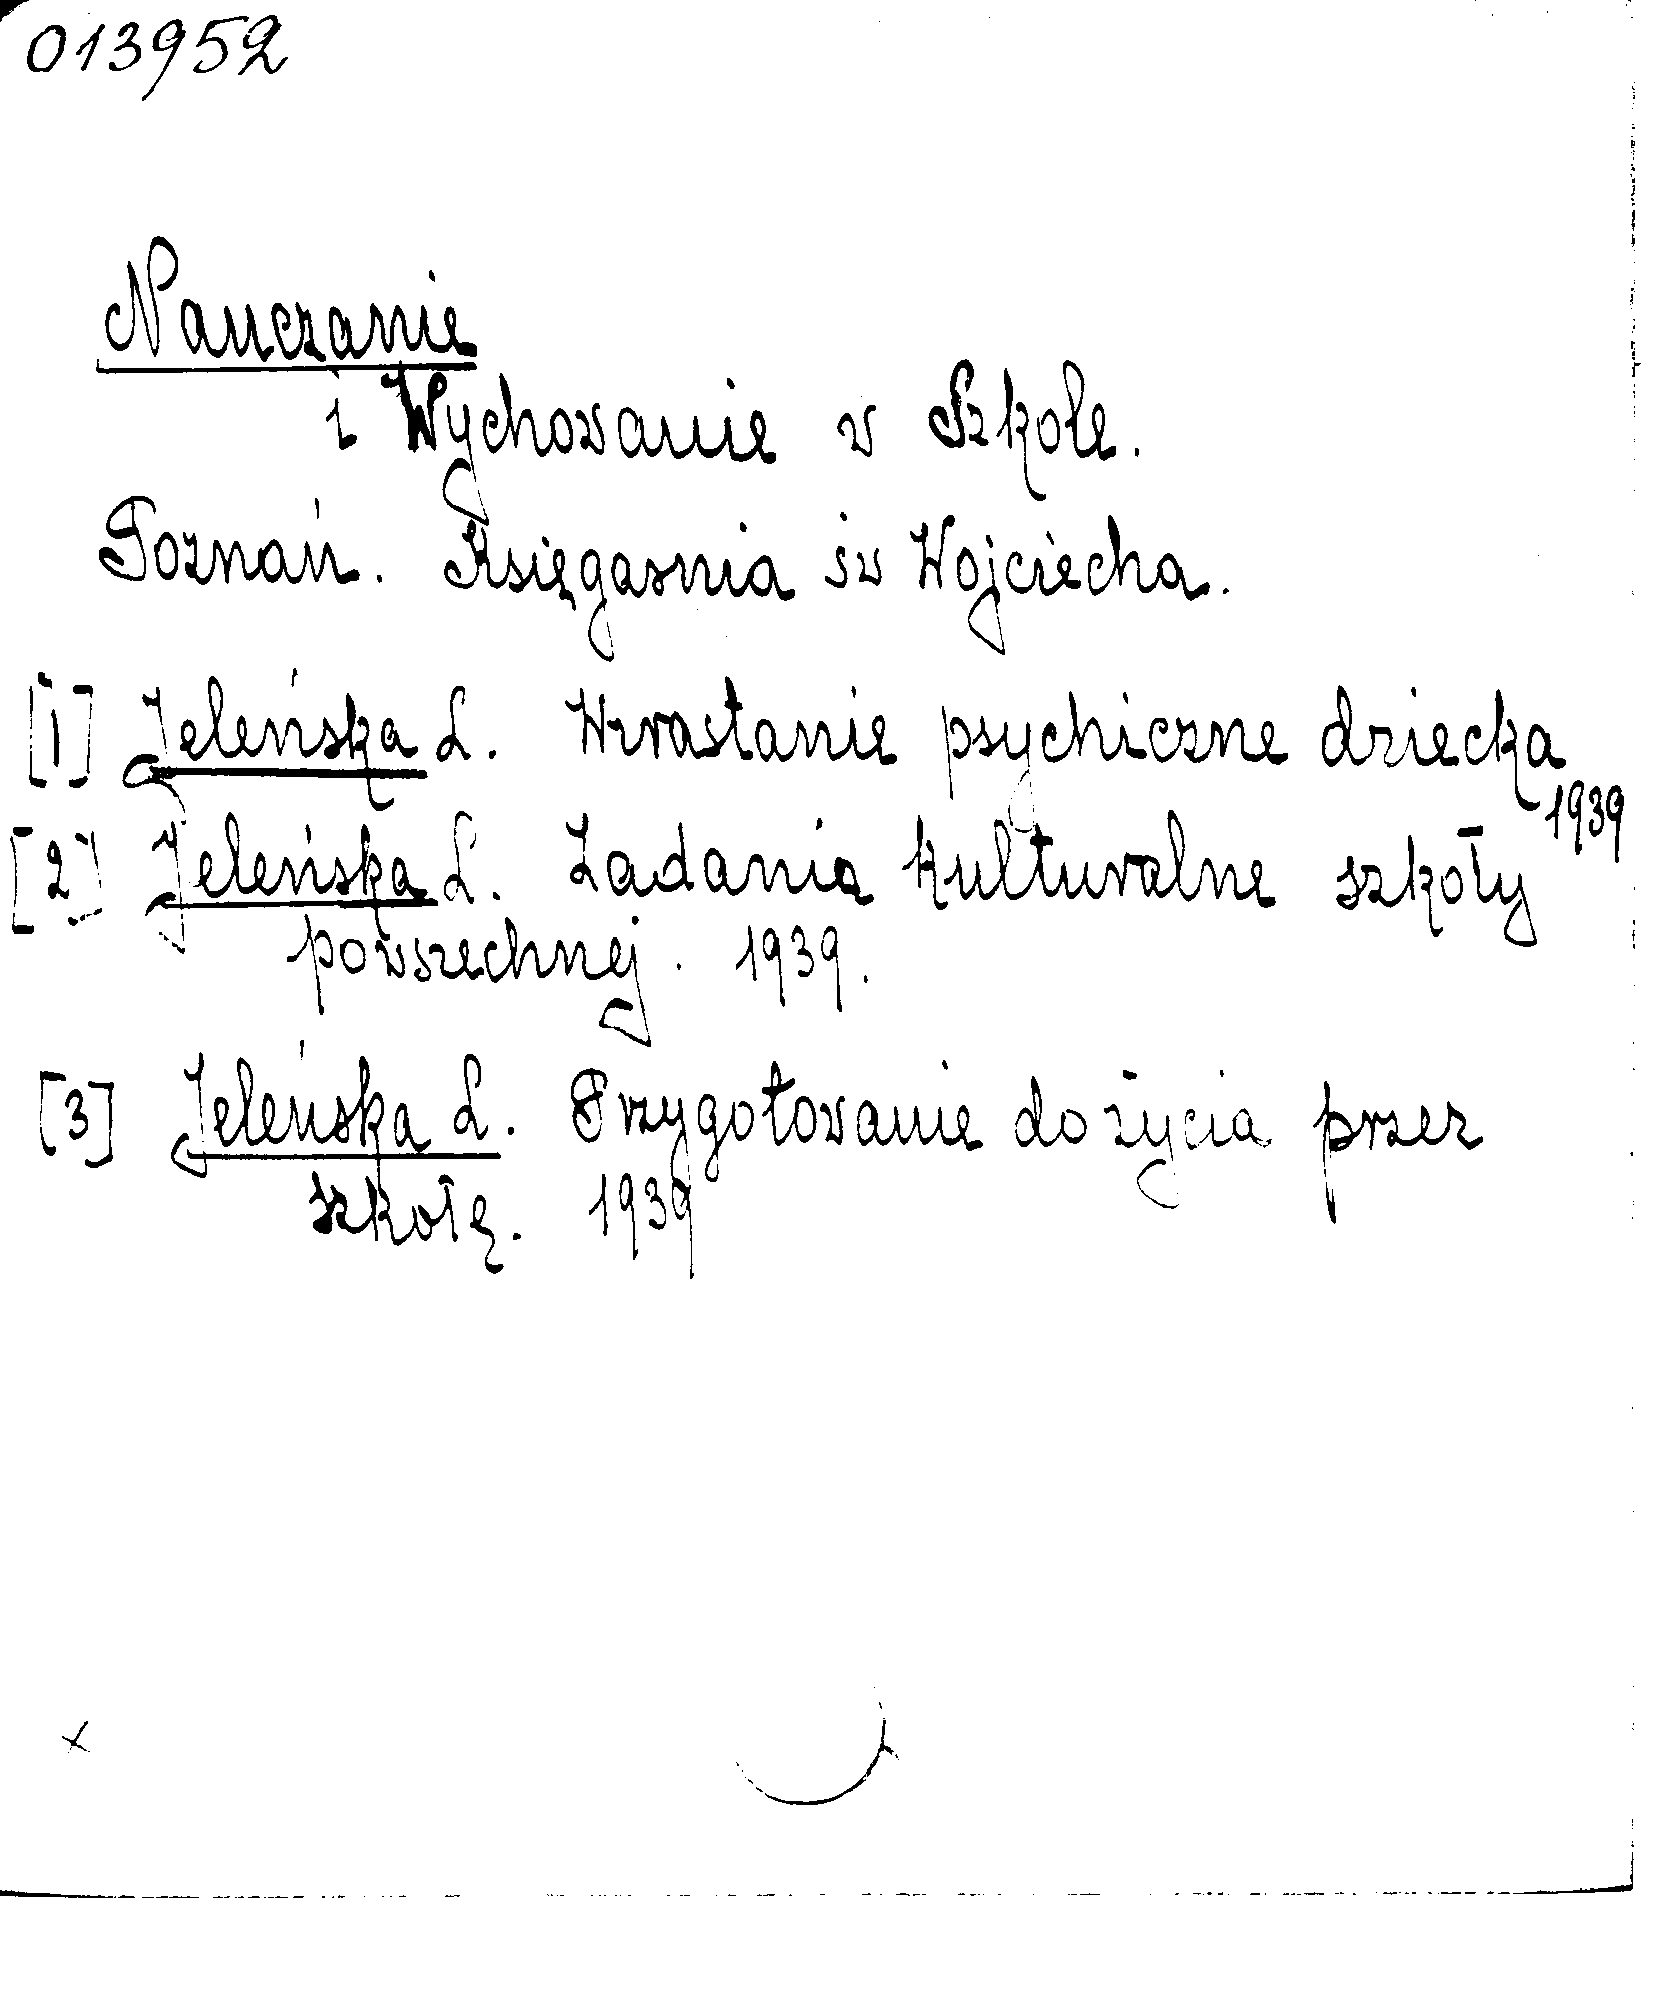 013952
Nauczanie
i Wychowanie w Szkole.
Poznań. Księgarnia św Wojciecha.
[1] Jeleńska L. Wzrastanie psychiczne dziecka
1939
[2] Jeleńska L. Zadania kulturalne szkoły
powszechnej. 1939.
[3] Jeleńska L. Przygotowanie do życia przez
szkołę. 1939